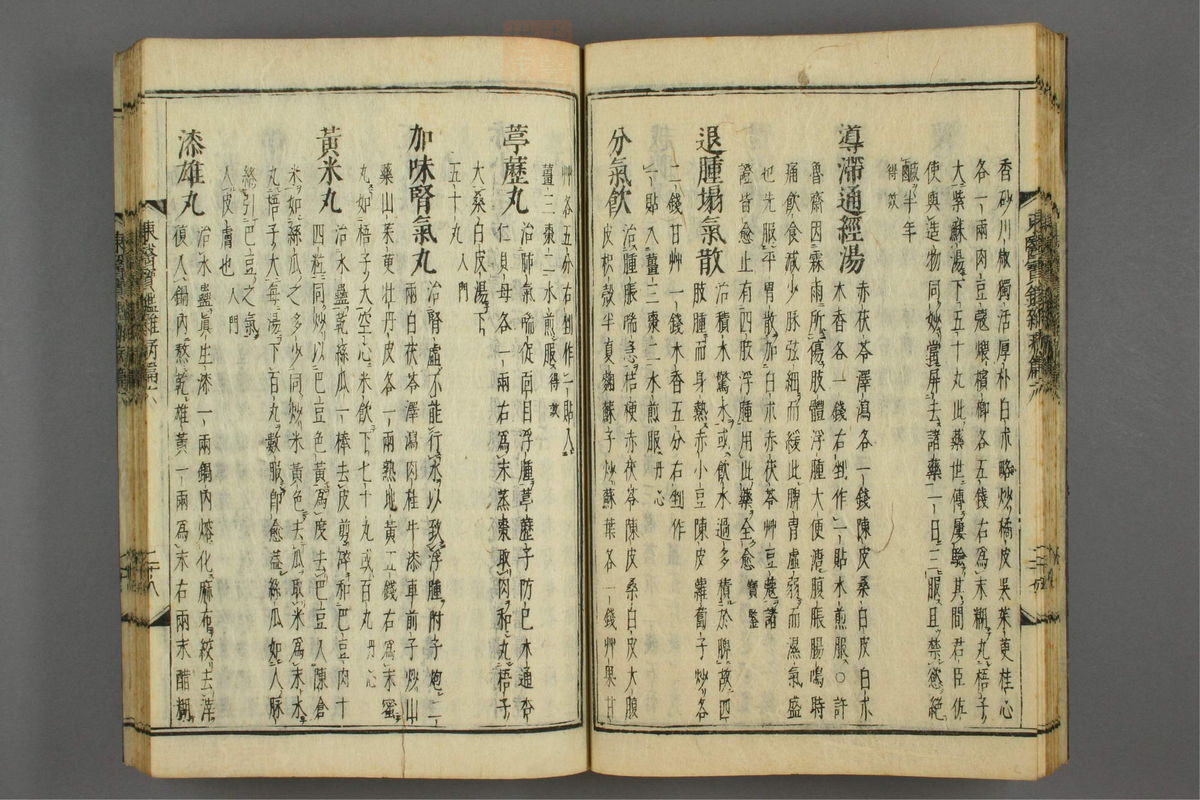 香砂川椒獨活厚朴白朮略炒橘皮吳茱萸桂心
各一兩肉豆蔲煨檳榔各五錢右爲末糊丸梧子
大紫蘇湯下五十丸此藥世傳屢驗其間君臣佐
使與造物同妙當屏去諸藥一日三服且禁慾絶
鹹半年
得效
導滯通經湯
木香各一錢右剉作一貼水煎服○許
赤茯苓澤瀉各一錢陳皮桑白皮白朮
魯齋因霖雨所傷肢體浮腫大便溏腹脹腸鳴時
痛飮食減少脉弦細而緩此脾胃虛弱而濕氣盛
也先服平胃散加白朮赤茯苓草豆蔲諸
證皆愈止有四肢浮腫用此藥全愈寶鑑
退腫塌氣散
治積水驚水或飮水過多積於脾故四
肢腫而身熱赤小豆陳皮蘿蔔子炒各
二錢甘艸一錢木香五分右剉作
一貼入薑三棗二水煎服丹心
分氣飮
治腫脹喘急桔梗赤茯苓陳皮桑白皮大腹
皮枳殼半夏麴蘇子炒蘇葉各一錢艸果甘
艸各五分右剉作二貼入
薑三棗二水煎服得效
葶藶丸
治肺氣喘促面目浮腫葶藶子防己木通杏
仁貝母各一兩右爲末蒸棗取肉和丸梧子
大桑白皮湯下
五十丸
入門
加味腎氣丸
治腎虛不能行水以致浮腫附子炮二
兩白茯苓澤瀉肉桂牛漆車前子炒山
藥山茱萸牡丹皮各一兩熟地黃五錢右爲末蜜
丸如梧子大空心米飮下七十丸或百丸丹心
黃米丸
治水蠱乾絲瓜一棒去皮剪碎和巴豆肉十
四粒同炒以巴豆色黃爲度去巴豆入陳倉
米如絲瓜之多少同炒米黃色去瓜取米爲末水
丸梧子大每湯下百丸數服卽愈盖絲瓜如人脉
絡引巴豆之氣
入皮膚也入門
漆雄丸
治水蠱眞生漆一兩鍋內熔化麻布絞去滓
復入鍋內熬乾雄黃一兩爲末右兩末醋糊
東醫寶鑑雜病篇六
二十八